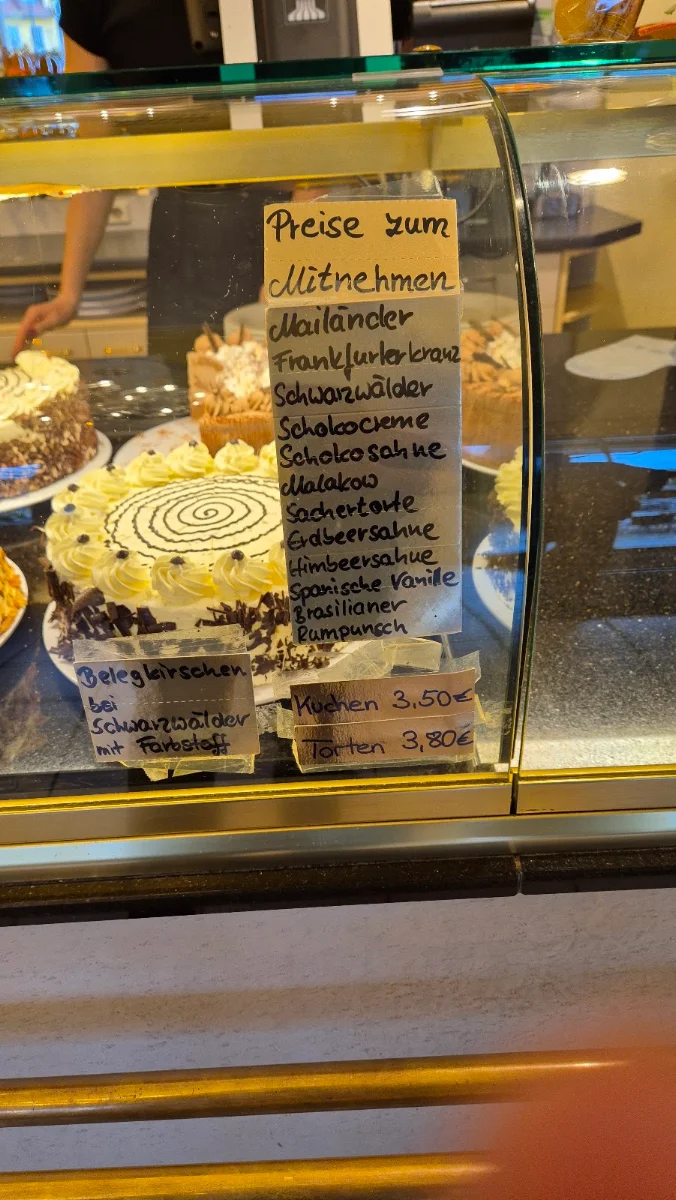 Preise zum
Mitnehmen
Mailänder
Frankfurterkranz
Schwarzwälder
Schokocreme
Schokosahne
Malakow
Sachertorte
Erdbeersahne
Himbeersahne
Spanische Vanille
Brasilianer
Rumpunsch
Belegkirschen
bei
Schwarzwälder
mit Farbstoff
Kuchen 3,50€
Torten 3,80€